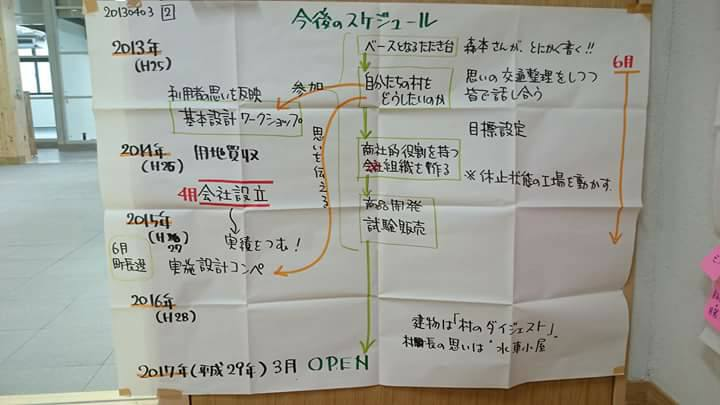 20130403 2
今後のスケジュール
2013年
(H25)
ベースとなるたたき台
森本さんが、とにかく書く!!
6月
自分たちの村を
どうしたいのか
思いの交通整理をしつつ
皆で話し合う
参加
利用者の思いを反映
基本設計ワークショップ
思いを伝える
目標設定
2014年
(H26)
用地買収
商社的役割を持つ
会社組織を作る
※休止状態の工場を動かす
4月 会社設立
商品開発
試験販売
2015年
(H27
実績をつむ!
6月
町長選
実施設計コンペ
2016年
(H28)
建物は「村のダイジェスト」
村長の思いは"水車小屋"
2017年(平成29年) 3月 OPEN